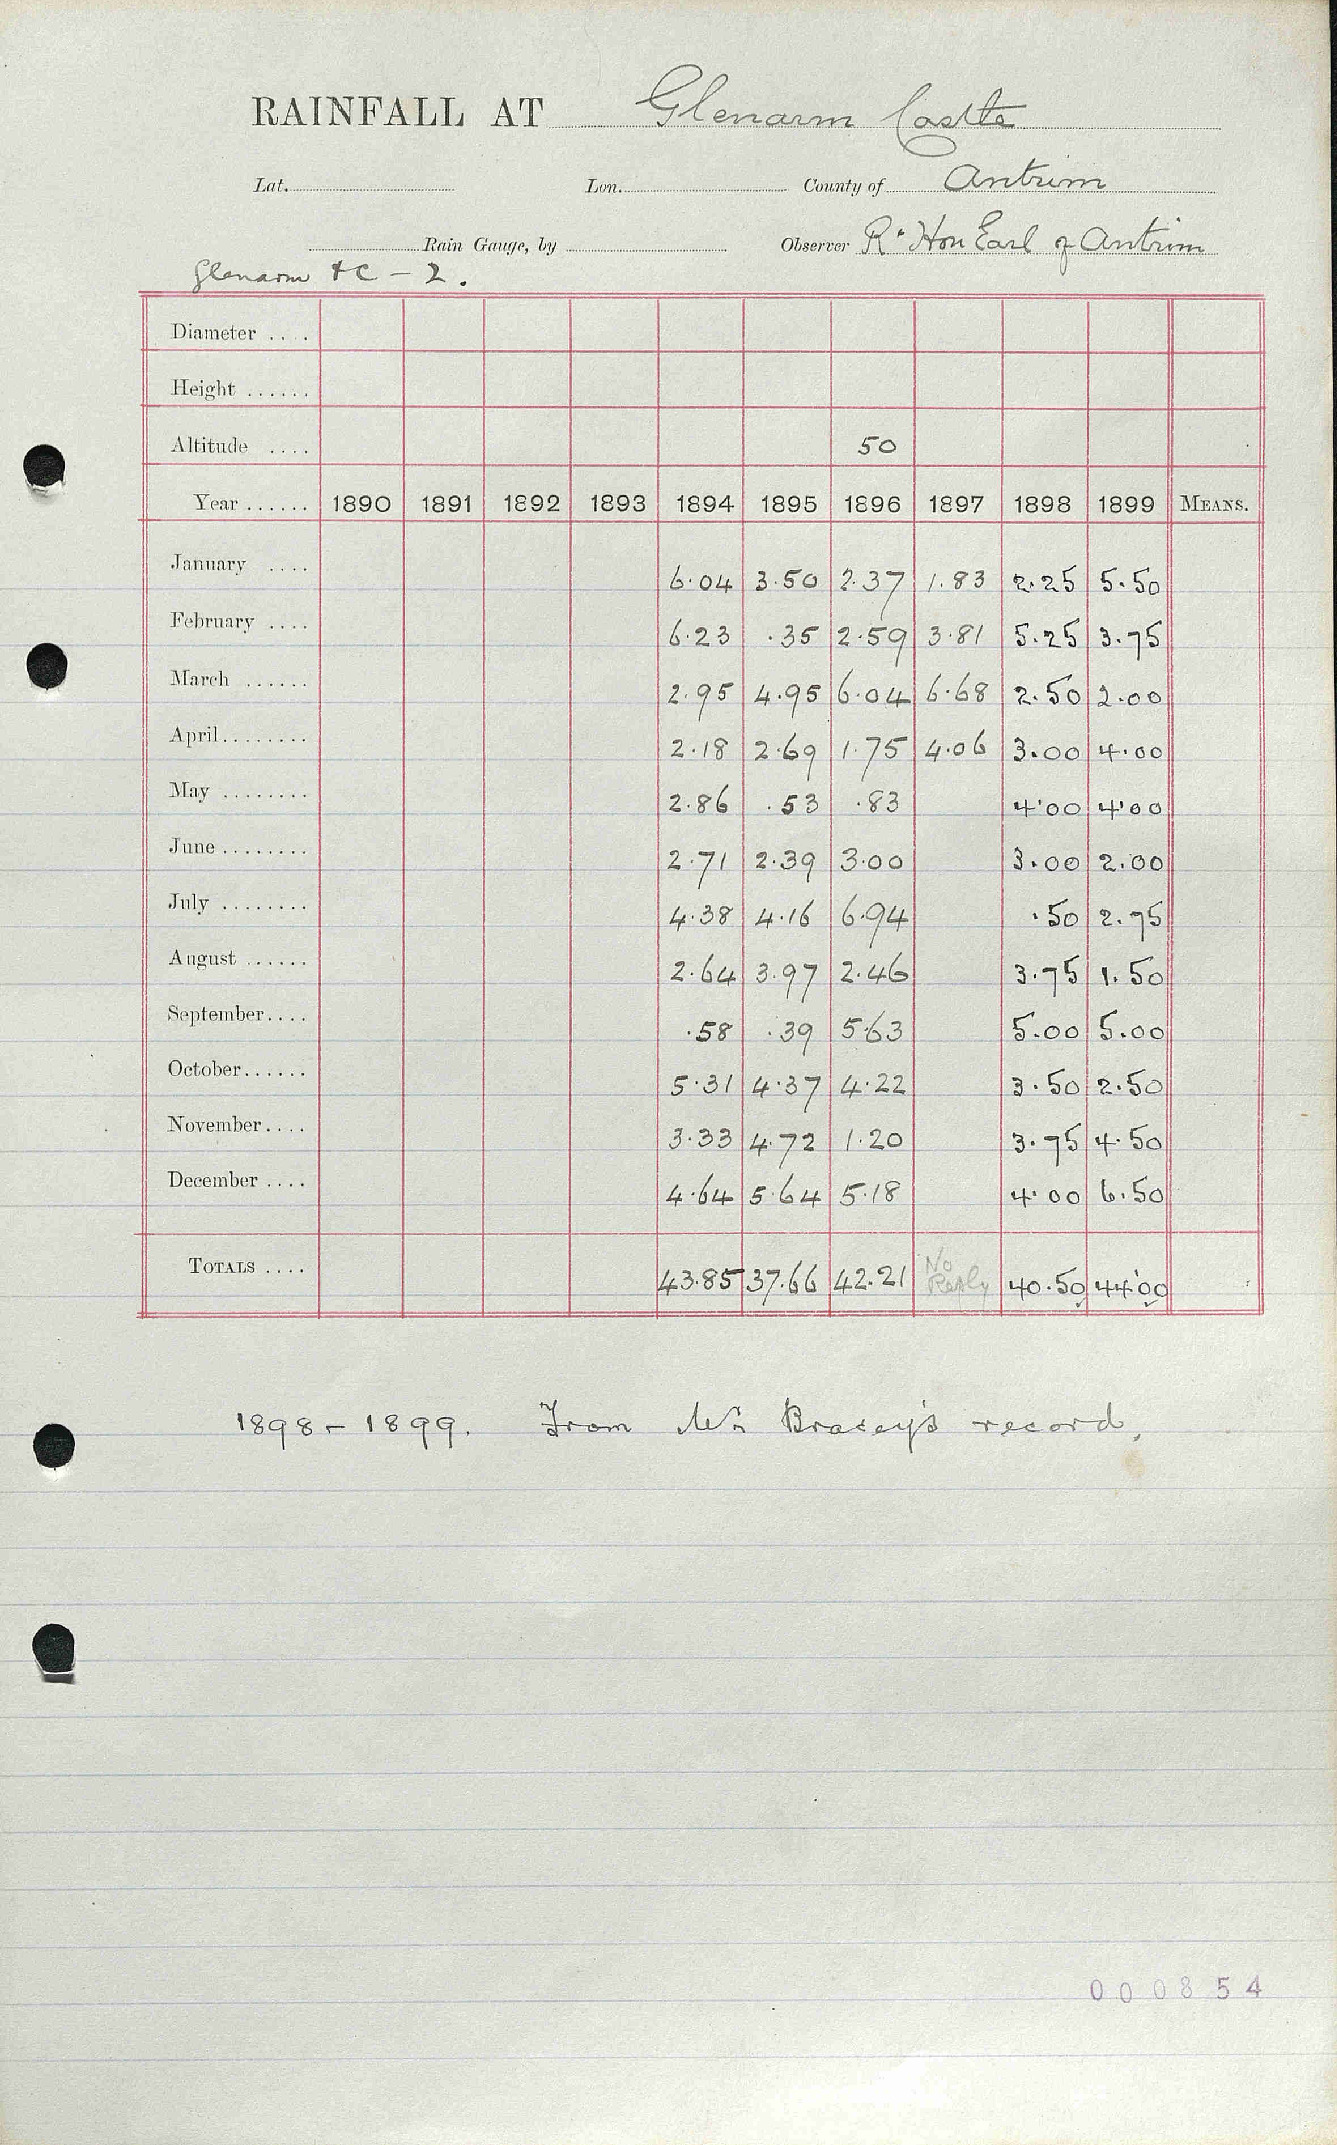 RAINFALL AT Glenarm Castle
Lat. Lon. County of Antrim
Rain Gauge, by Observer Rt Hon Earl of Antrim
Glenarm +C - 2.
Diameter ....
Height ......
Altitude .... 50
Year ...... 1890 1891 1892 1893 1894 1895 1896 1897 1898 1899 MEANS.
January .... 6.04 3.50 2.37 1.83 2.25 5.50
February .... 6.23 .35 2.59 3.81 5.25 3.75
March ...... 2.95 4.95 6.04 6.68 2.50 2.00
April........ 2.18 2.69 1.75 4.06 3.00 4.00
May ........ 2.86 .53 .83 4.00 4.00
June ........ 2.71 2.39 3.00 3.00 2.00
July ........ 4.38 4.16 6.94 .50 2.75
August ...... 2.64 3.97 2.46 3.75 1.50
September.... .58 .39 5.63 5.00 5.00
October...... 5.31 4.37 4.22 3.50 2.50
November.... 3.33 4.72 1.20 3.75 4.50
December .... 4.64 5.64 5.18 4.00 6.50
TOTALS .... 43.85 37.66 42.21 No Reply 40.50 44.00
1898-1899. From Mr Bracey's record.
000854